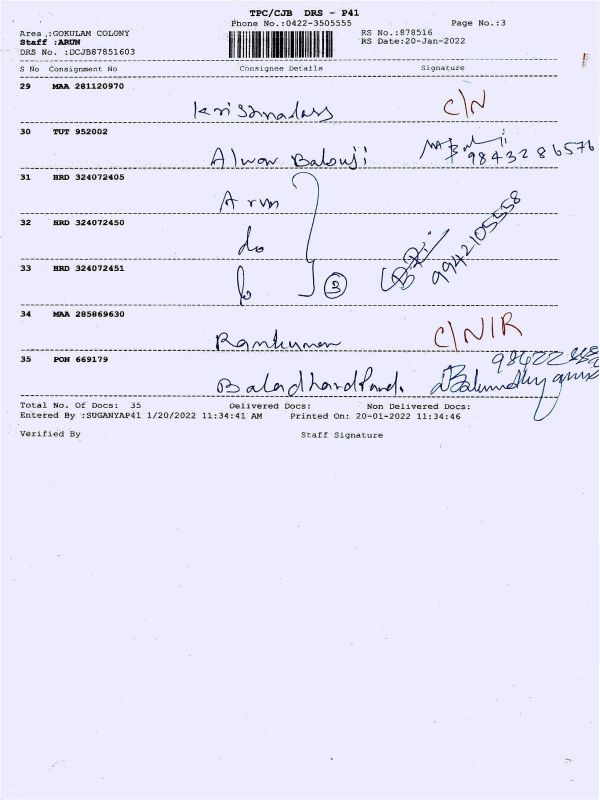 TPC/CJB DRS - P41
Phone No.:0422-3505555 Page No.:3
Area :GOKULAM COLONY RS No.:878516
Staff :ARUN RS Date:20-Jan-2022
DRS No. :DCJB87851603
S No Consignment No Consignee Details Signature
29 MAA 281120970
Krishnadass C/N
30 TUT 952002
Alwar Balouji 98432 86576
31 HRD 324072405
Arun
32 HRD 324072450
do 9942105558
33 HRD 324072451
do 3
34 MAA 285869630
Ramkumar C/N/R
35 PON 669179
98422
Total No. Of Docs: 35 Delivered Docs: Non Delivered Docs:
Entered By :SUGANYAP41 1/20/2022 11:34:41 AM Printed On: 20-01-2022 11:34:46
Verified By Staff Signature